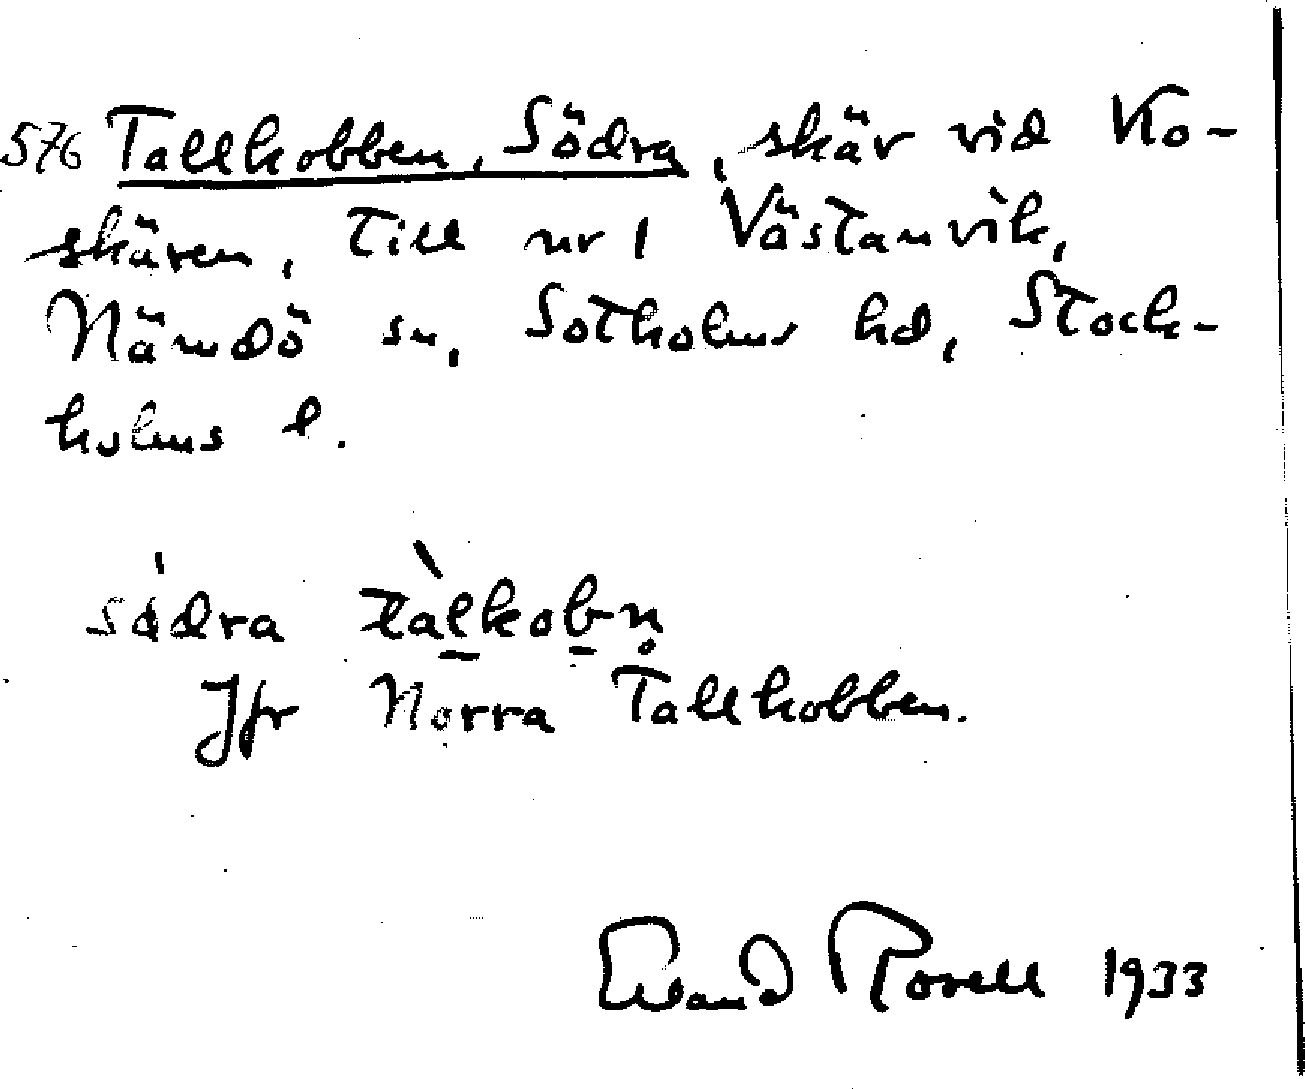 576 Tallkobben, Södra, skär vid Ko-
skären, till nr 1 Västanvik,
Nämdö sn, Sotholms hd, Stock-
holms l.
södra tàlkobn̥
Jfr Norra Tallkobben.
1933